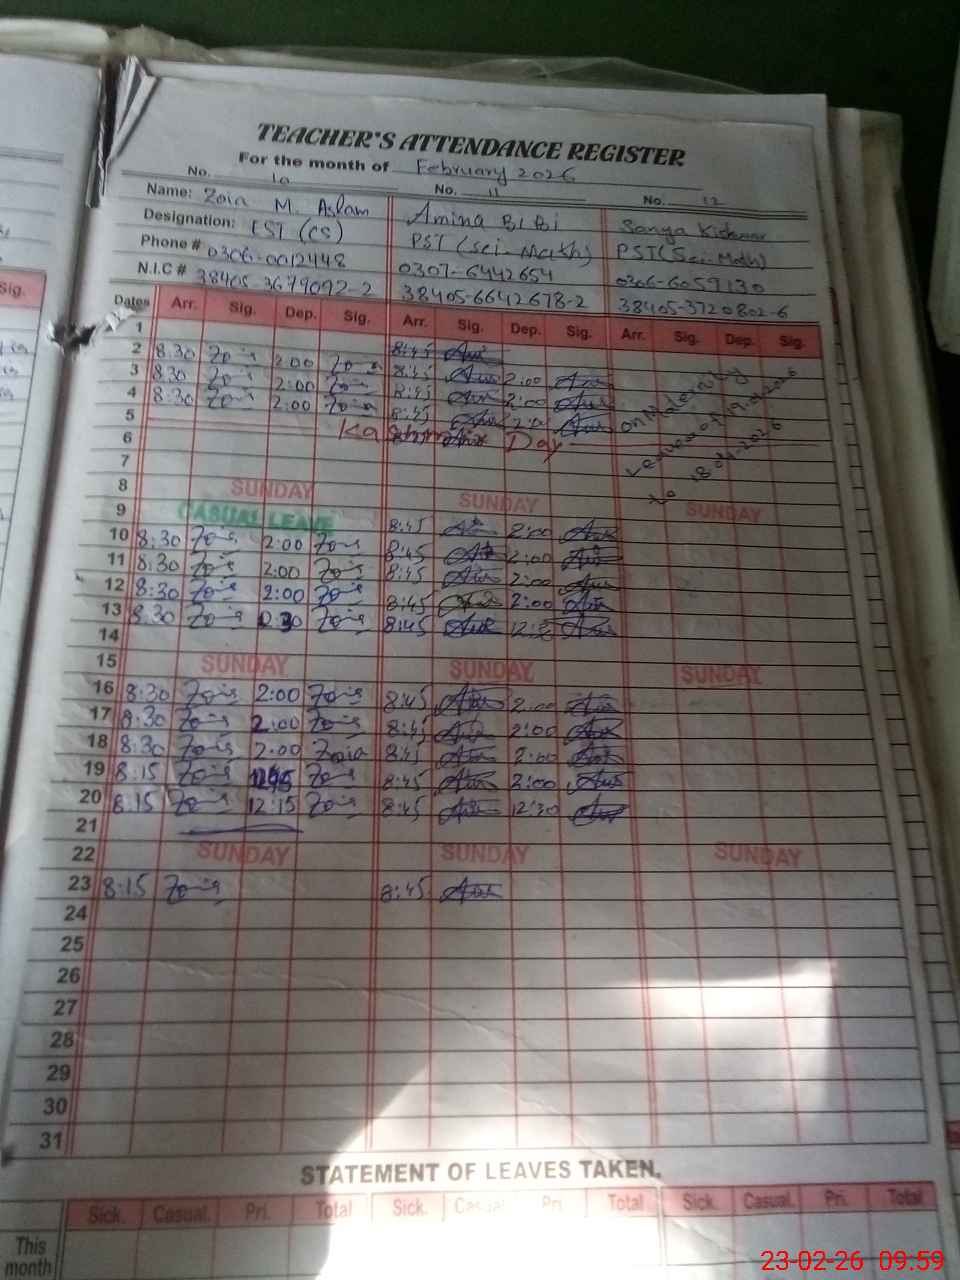 TEACHER'S ATTENDANCE REGISTER
For the month of February 2026
No. 10 No. 11 No. 12
Name: Zoia M. Aslam Amina BiBi Sanya
Designation: EST (CS) PST (Sci-Math) PST (Sci-Math)
Phone # 0306-0012448 0307-6442654 0306-6059130
N.I.C # 38405-3679092-2 38405-6642678-2 38405-3720802-6
Dates Arr. Sig. Dep. Sig. Arr. Sig. Dep. Sig. Arr. Sig. Dep. Sig.
1
2 8:30 Zoia 2:00 Zoia 8:45
3 8:30 Zoia 2:00 Zoia 8:45 2:00
4 8:30 Zoia 2:00 Zoia 8:45 2:00
5 Kashmir Day 8:45
6
on Maternity
Leave
to
7
8 SUNDAY SUNDAY SUNDAY
9 CASUAL LEAVE 8:45 2:00
10 8:30 Zoia 2:00 Zoia 8:45 2:00
11 8:30 Zoia 2:00 Zoia 8:45 2:00
12 8:30 Zoia 2:00 Zoia 8:45 2:00
13 8:30 Zoia Zoia 8:45
14
15 SUNDAY SUNDAY SUNDAY
16 8:30 Zoia 2:00 Zoia 8:45 2:00
17 8:30 Zoia 2:00 Zoia 8:45 2:00
18 8:30 Zoia 2:00 Zoia 8:45 2:00
19 8:15 Zoia Zoia 8:45 2:00
20 8:15 Zoia 12:15 Zoia 8:45 12:30
21
22 SUNDAY SUNDAY SUNDAY
23 8:15 Zoia 8:45
24
25
26
27
28
29
30
31
STATEMENT OF LEAVES TAKEN.
Sick. Casual. Pri. Total Sick. Casual. Pri. Total Sick. Casual. Pri. Total
This
month
23-02-26 09:59